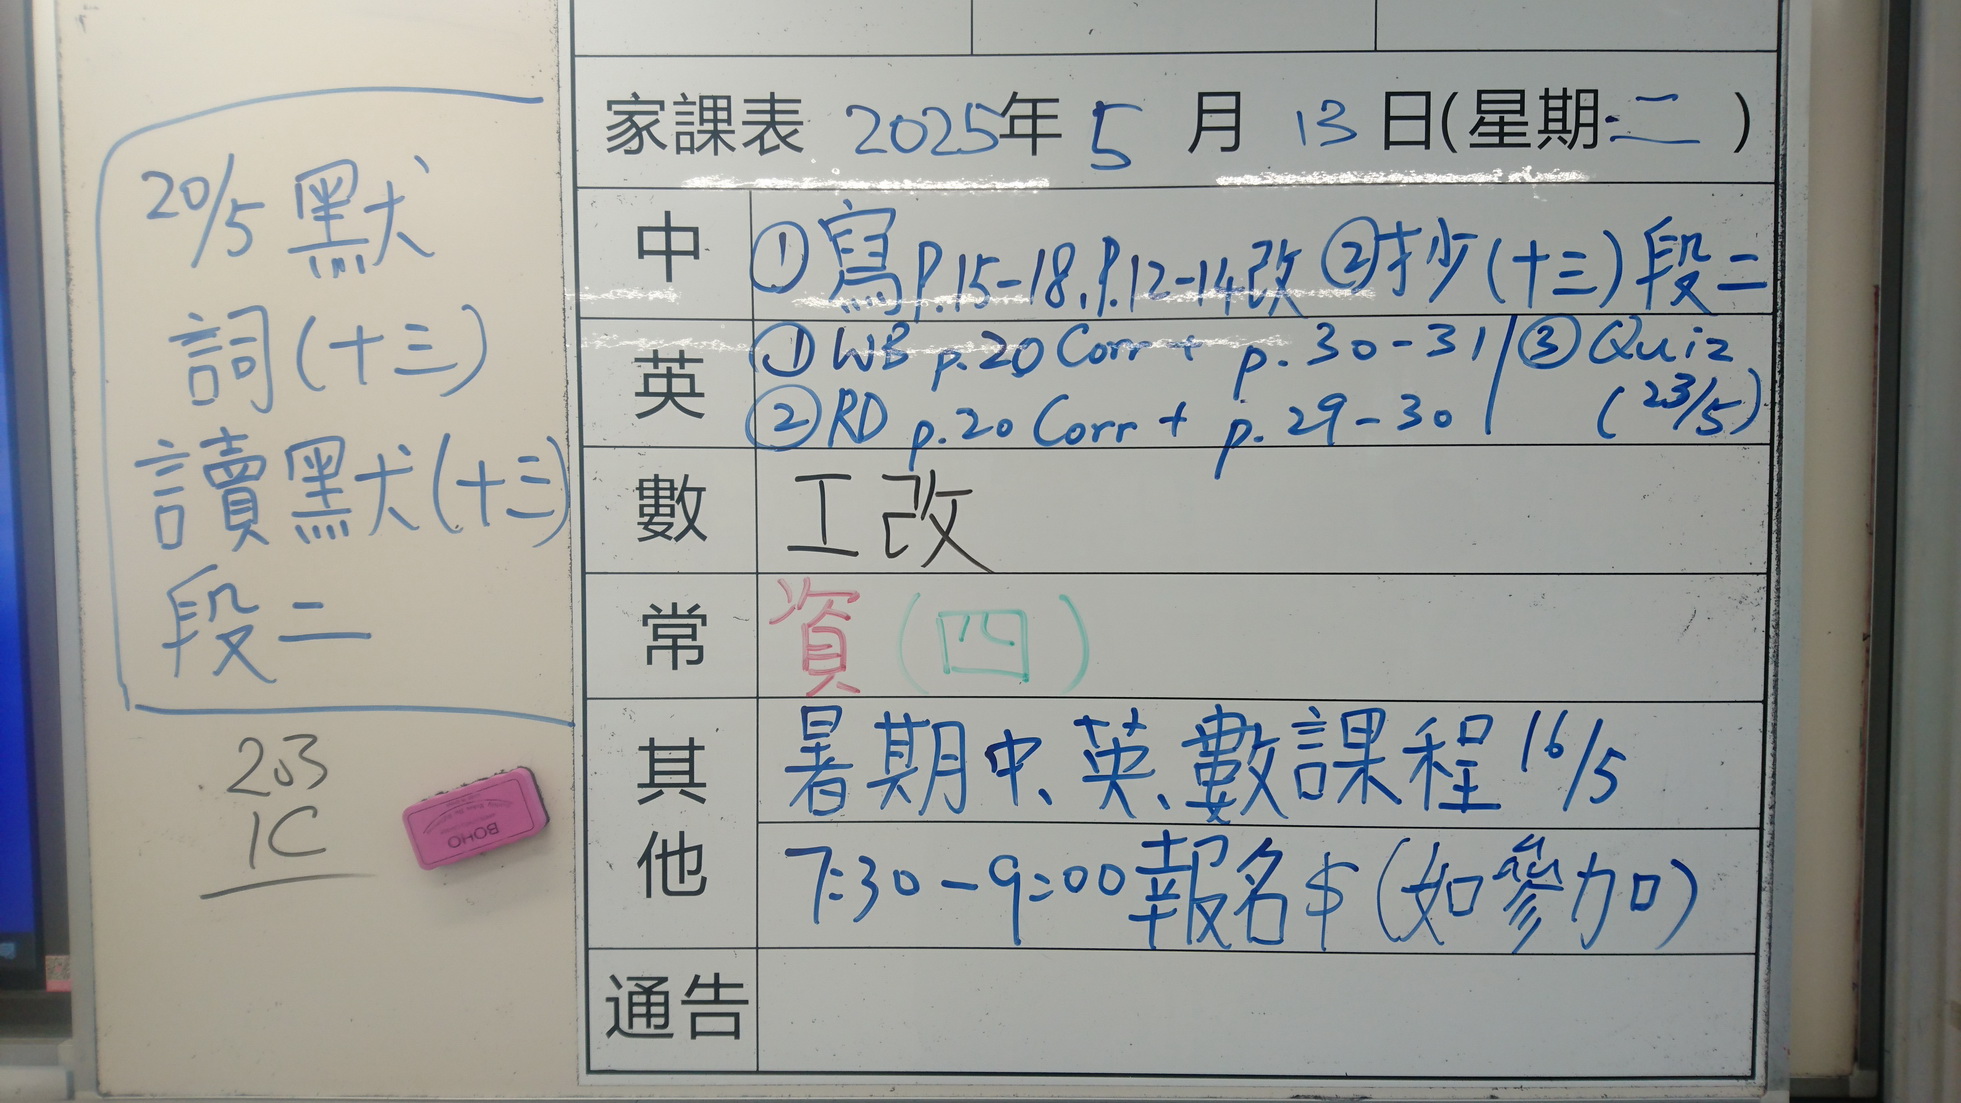 20/5 默
詞(十三)
讀默(十三)
段二
203
1C
BOHO
家課表 2025年 5 月 13 日(星期二)
中 ①寫p.15-18,p.12-14改 ②抄(十三)段二
英 ①WB p.20 Corr + p.30-31 ③Quiz
②RD p.20 Corr + p.29-30 (23/5)
數 工改
常 資(四)
其他 暑期中、英、數課程 16/5
7:30-9:00報名$(如參加)
通告